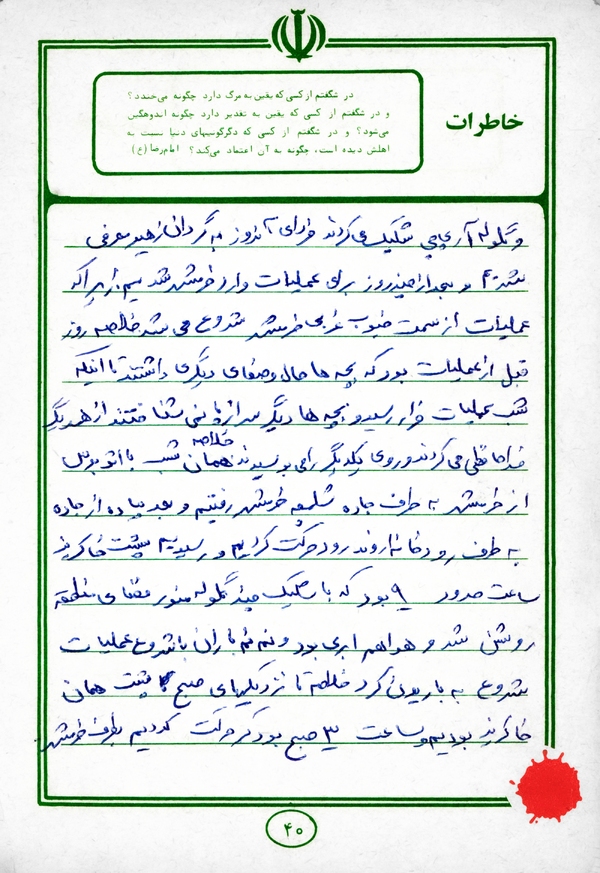 خاطرات
در شگفتم از کسی که یقین به مرگ دارد چگونه می‌خندد؟
و در شگفتم از کسی که یقین به تقدیر دارد چگونه اندوهگین
می‌شود؟ و در شگفتم از کسی که دگرگونیهای دنیا نسبت به
اهلش دیده است، چگونه به آن اعتماد می‌کند؟ امام‌رضا (ع)
و گلوله آر پی جی شلیک می کردند فردای آنروز به گردان زهیر معرفی
شدم و بعد از چند روز برای عملیات وارد خرمشهر شدیم زیرا که
عملیات از سمت جنوب غربی خرمشهر شروع می شد خلاصه روز
قبل از عملیات بود که بچه ها حال و صفای دیگری داشتند تا اینکه
شب عملیات فرا رسید و بچه ها دیگر سر از پا نمی شناختند از همدیگر
خداحافظی می کردند و روی یکدیگر را می بوسیدند خلاصه همان شب با اتوبوس
از خرمشهر به طرف جاده شلمچه خرمشهر رفتیم و بعد پیاده از جاده
به طرف رودخانه اروند رود حرکت کردیم و رسیدیم پشت خاکریز
ساعت حدود ۹ بود که با شلیک چند گلوله منور فضای منطقه
روشن شد و هوا هم ابری بود و نم نم باران با شروع عملیات
شروع به باریدن کرد خلاصه تا نزدیکیهای صبح پشت همان
خاکریز بودیم و ساعت ۳ صبح بود که حرکت کردیم بطرف خرمشهر
۴۰